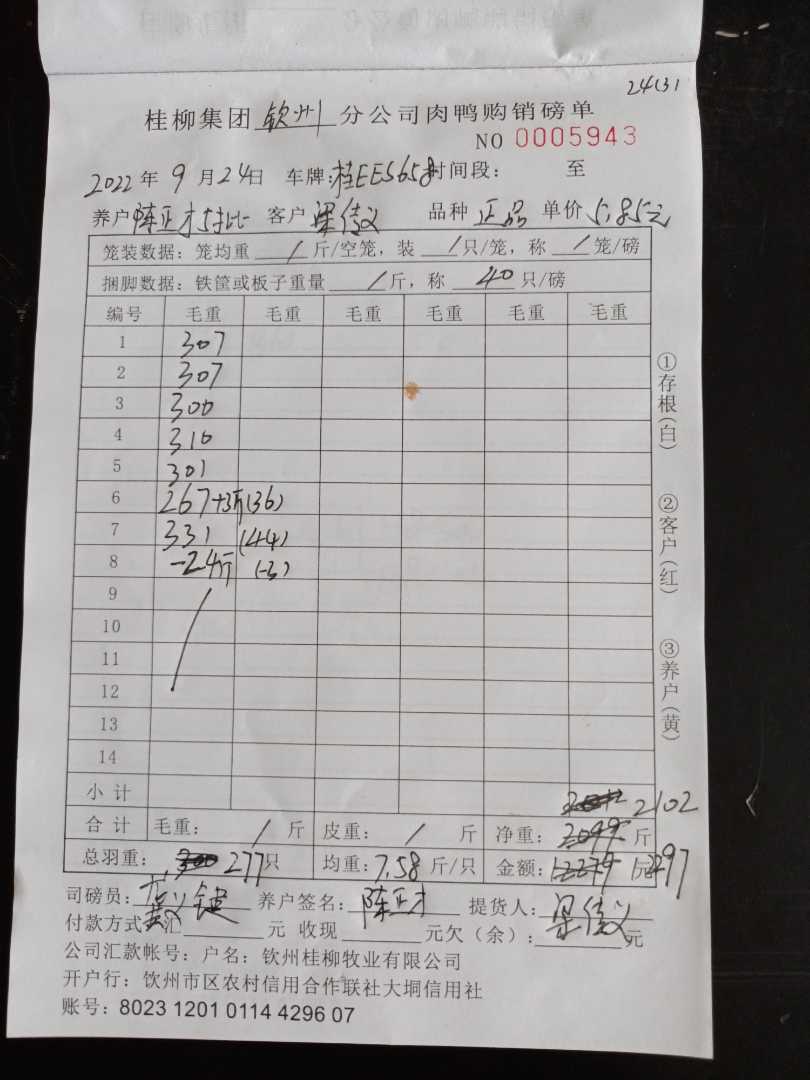 24(3)
桂柳集团 钦州 分公司肉鸭购销磅单
NO 0005943
2022 年 9 月 24日 车牌:桂EE5658 时间段: 至
养户 陈正才对比 客户 梁信义 品种 正品 单价 5.85元
笼装数据:笼均重 / 斤/空笼,装 / 只/笼,称 / 笼/磅
捆脚数据:铁筐或板子重量 / 斤,称 40 只/磅
编号 毛重 毛重 毛重 毛重 毛重 毛重
1 307
2 307
3 300
4 310
5 301
6 267+3斤(36)
7 331 (44)
8 -24斤 (-3)
9
10
11
12
13
14
小计 2102
合计 毛重: / 斤 皮重: / 斤 净重: 2099 斤
总羽重: 300 277只 均重:7.58 斤/只 金额: 12279 12297元
司磅员: 键 养户签名: 陈正才 提货人: 梁信义
付款方式:汇 元 收现 元欠(余): 元
公司汇款帐号:户名:钦州桂柳牧业有限公司
开户行:钦州市区农村信用合作联社大垌信用社
账号:8023 1201 0114 4296 07
①存根(白)
②客户(红)
③养户(黄)